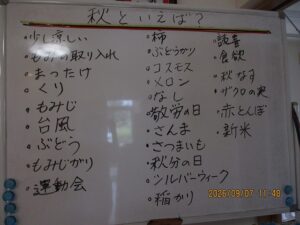 秋といえば?
・少し涼しい
・もみの取り入れ
・まったけ
・くり
・もみじ
・台風
・ぶどう
・もみじがり
・運動会
・柿
・ぶどうかり
・コスモス
・メロン
・なし
・敬労の日
・さんま
・さつまいも
・秋分の日
・シルバーウィーク
・稲かり
・読書
・食欲
・秋なす
・ザクロの実
・赤とんぼ
・新米
2026/09/07 11:48